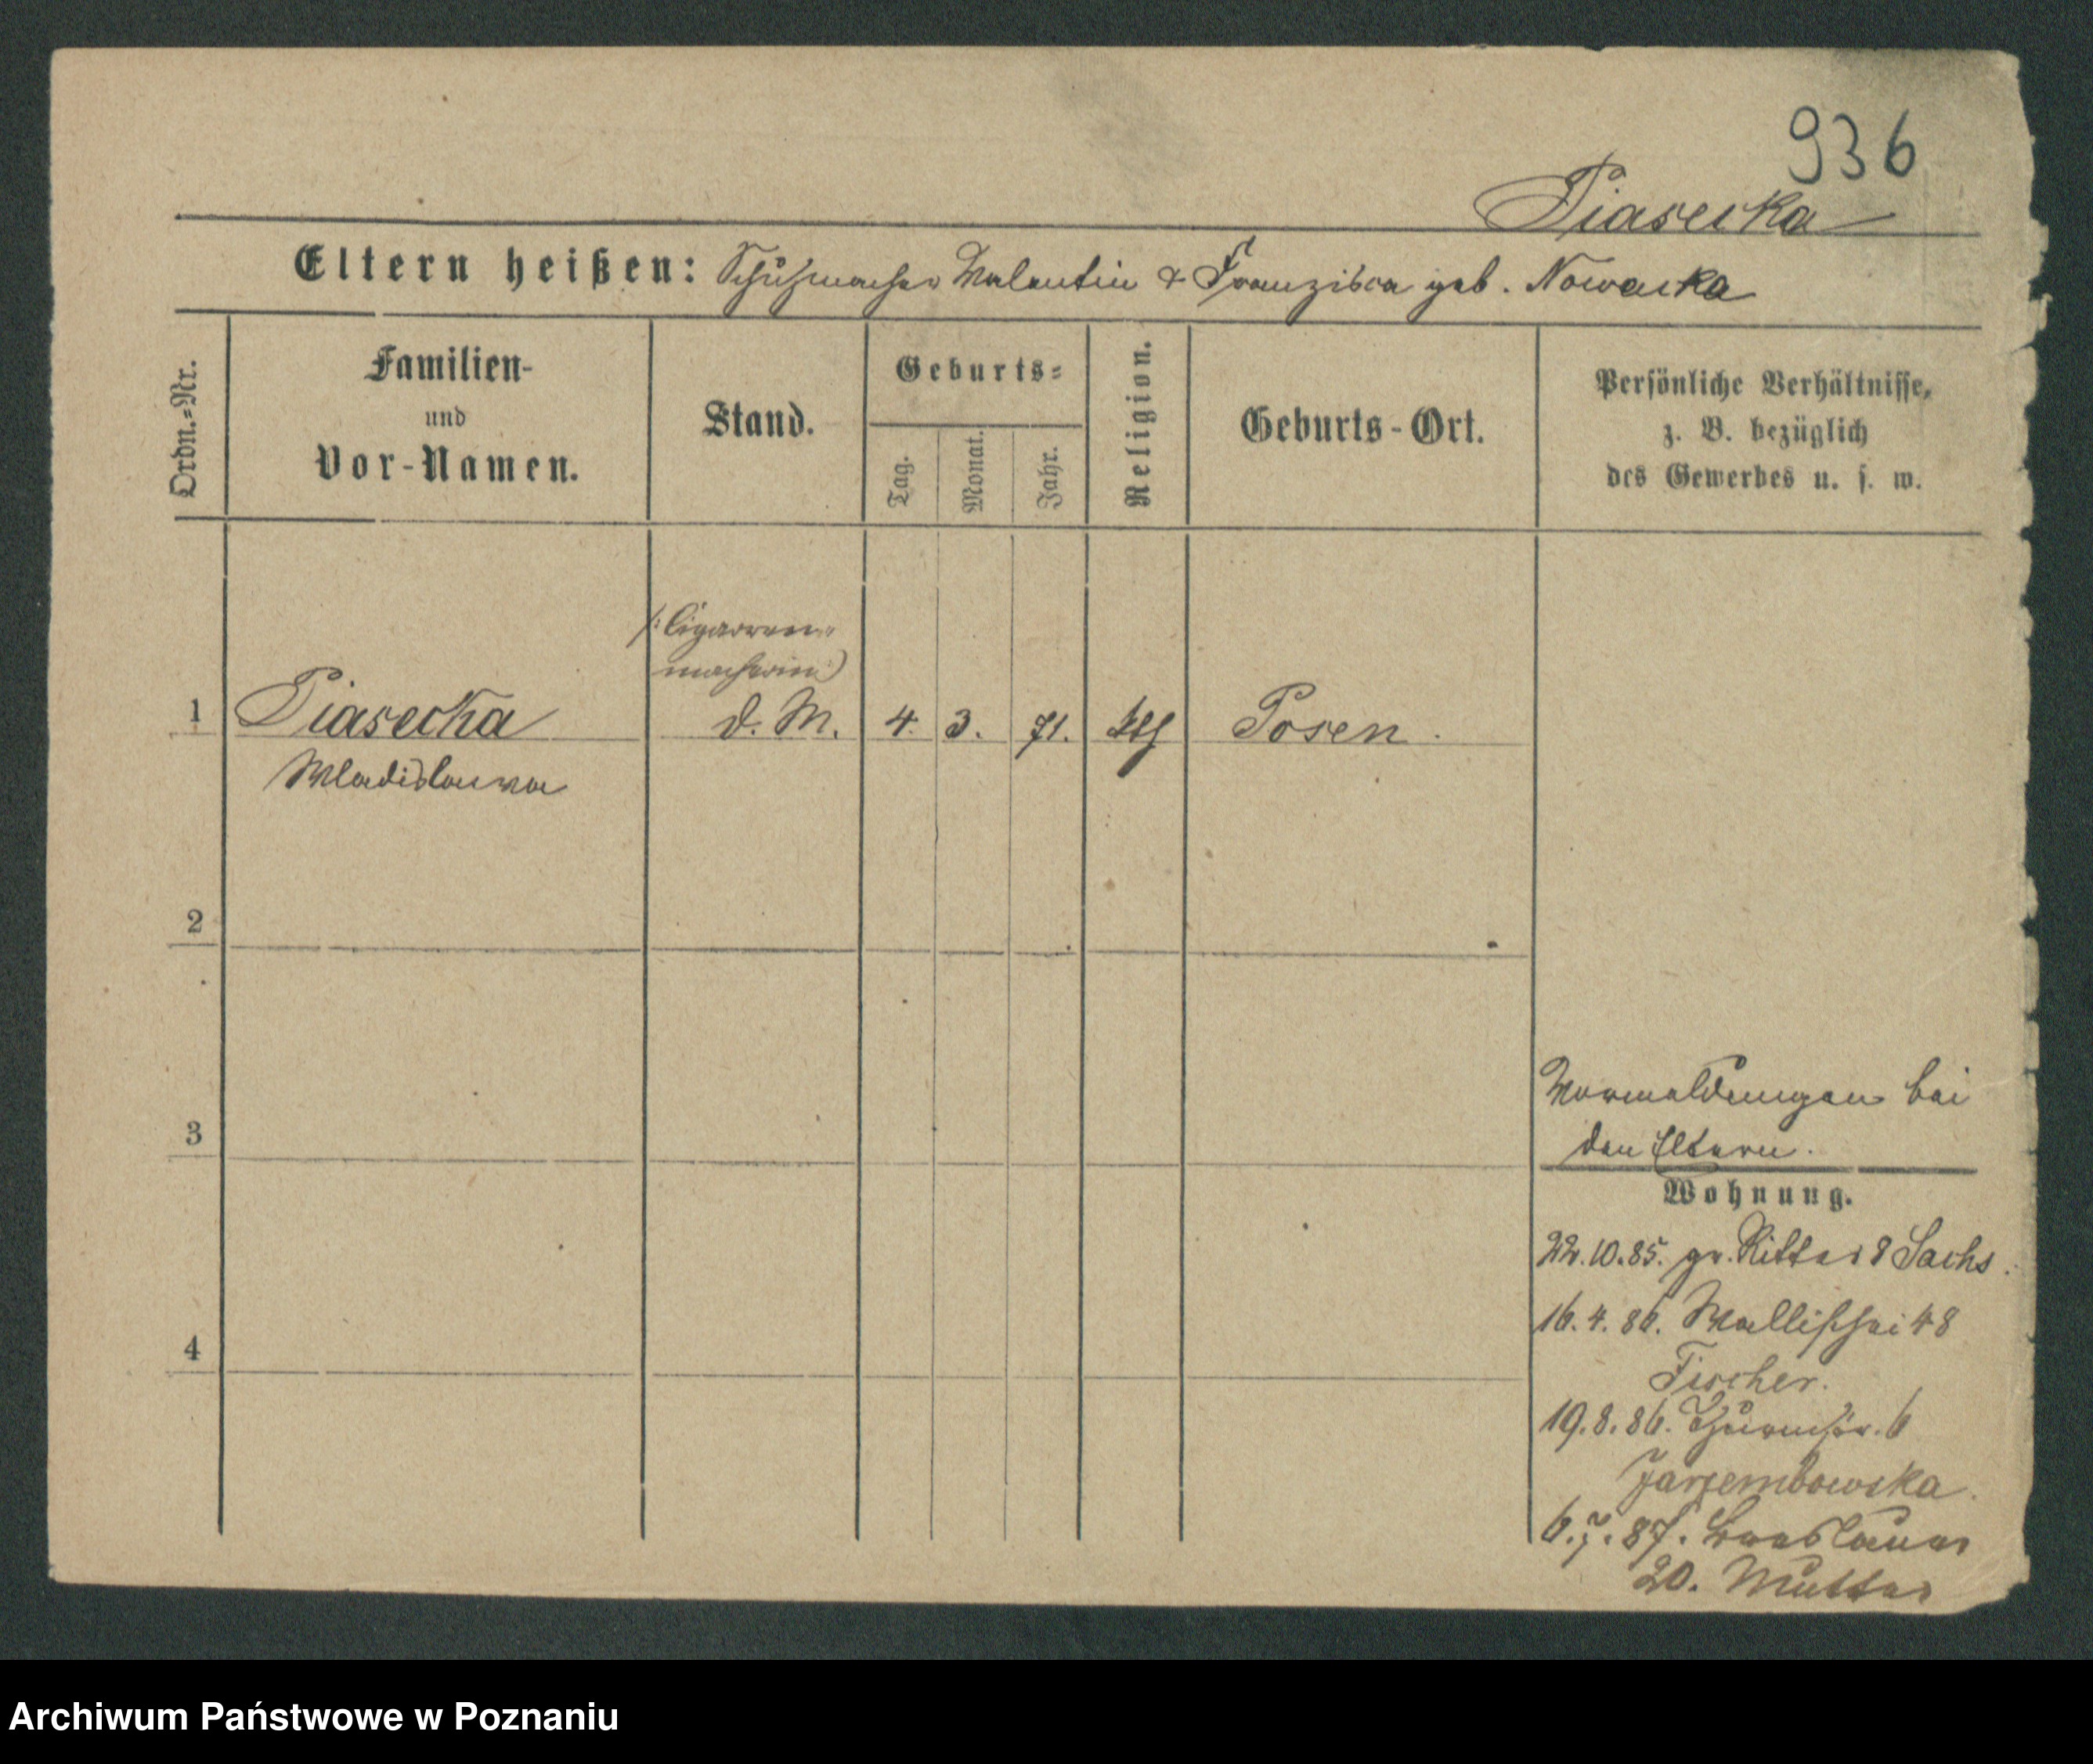 936
Piasecka
Eltern heißen: Schuhmacher Valentin & Franziska geb. Nowacka
Ordn.=Nr.
Familien-
und
Vor-Namen.
Stand.
Geburts=
Tag.
Monat.
Jahr.
Religion.
Geburts-Ort.
Persönliche Verhältnisse,
z. B. bezüglich
des Gewerbes u. s. w.
(: Cigarren-
macherin :)
1 Piasecka d. M. 4. 3. 71. kth Posen.
Wladislawa
2
3
4
Vormeldungen bei
den Eltern.
Wohnung.
22.10.85. gr. Ritter 8 Sachs.
16.4.86. Wallischei 48
Fischer.
19.8.86. Thurmstr. 6
Jarzembowska.
6.7.87. Breslauer
20. Mutter
Archiwum Państwowe w Poznaniu